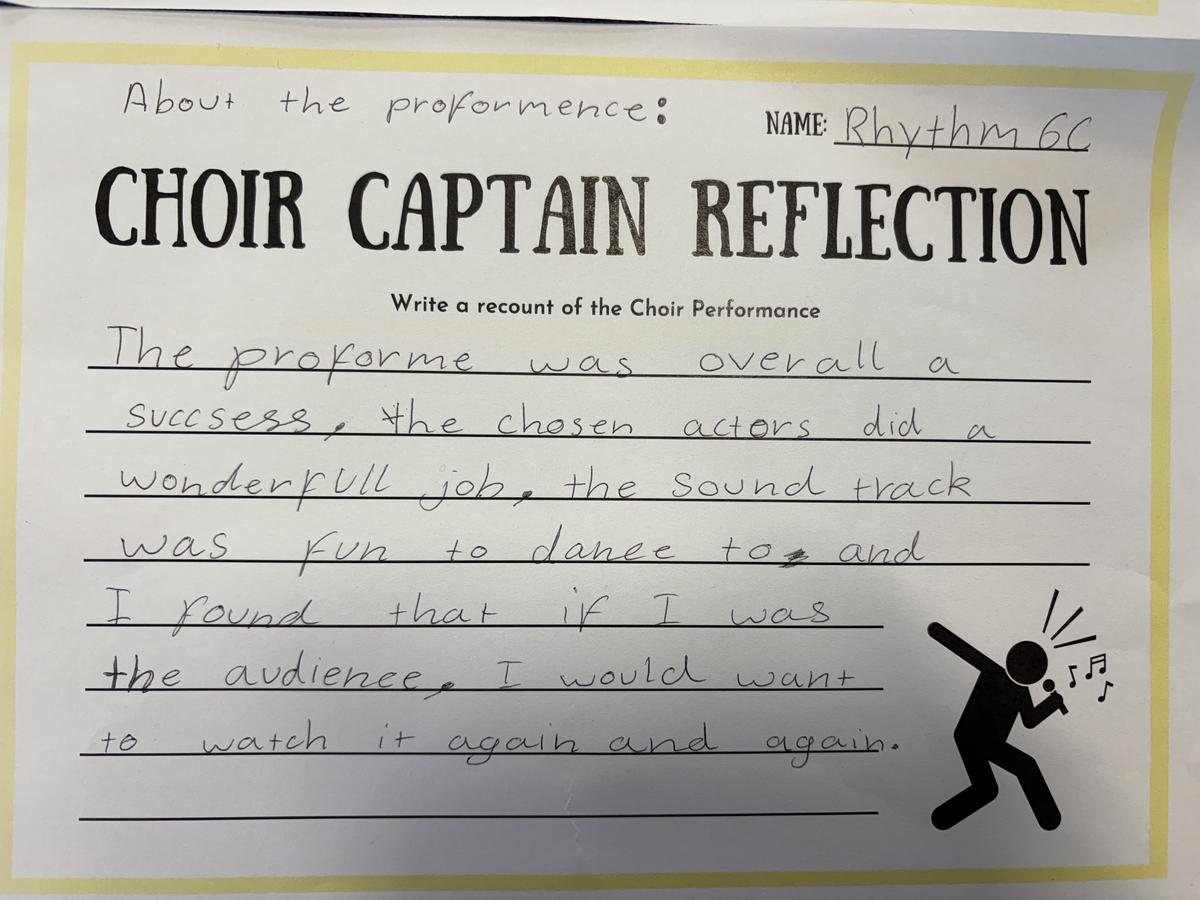 About the proformence:
NAME: Rhythm 6C
CHOIR CAPTAIN REFLECTION
Write a recount of the Choir Performance
The proforme was overall a
succsess, the chosen actors did a
wonderfull job, the sound track
was fun to dance to, and
I found that if I was
the audience, I would want
to watch it again and again.